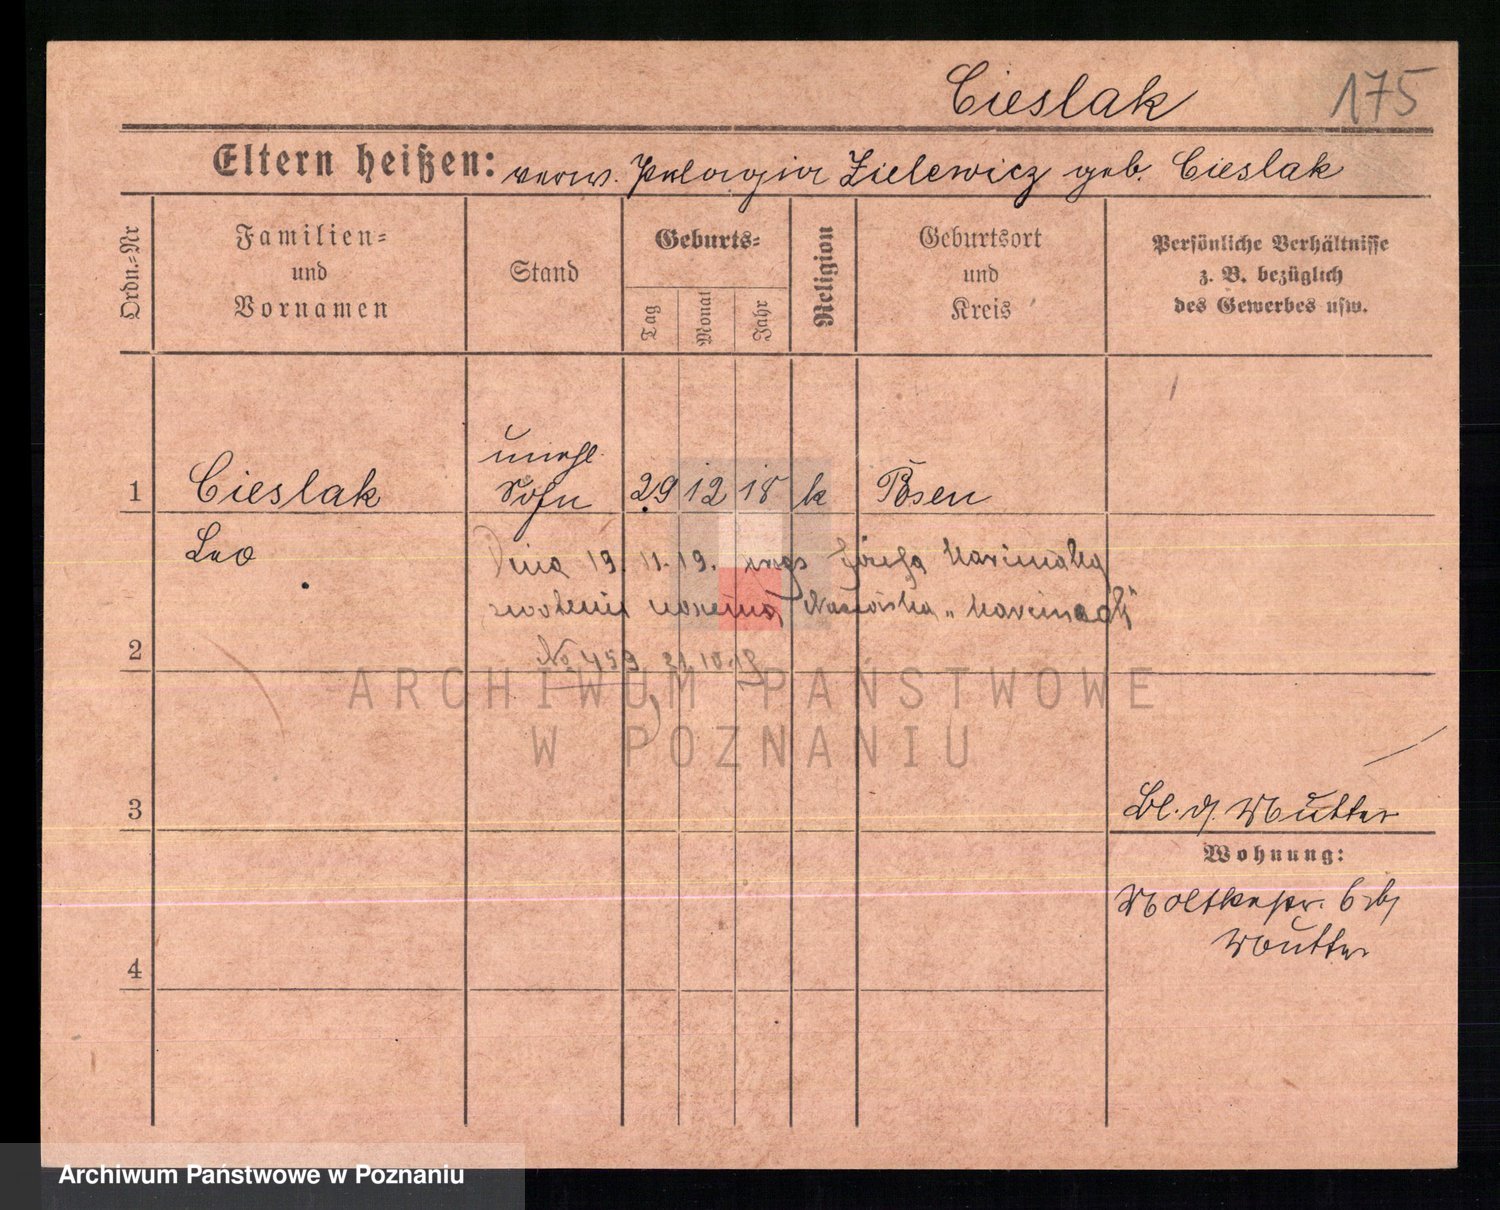 Cieslak 175
Eltern heißen: verw. Pelagia Zielewicz geb. Cieslak
Ordn.-Nr
Familien-
und
Vornamen
Stand
Geburts-
Tag
Monat
Jahr
Religion
Geburtsort
und
Kreis
Persönliche Verhältnisse
z. B. bezüglich
des Gewerbes usw.
unehl.
1 Cieslak Sohn 29 12 18 k Posen
Leo
Dnia 19. 11. 19. przez Józefa
nazwiska
2
No 459 31.10.19
ARCHIWUM PAŃSTWOWE
W POZNANIU
3
Bl. d. Mutter
Wohnung:
Moltkestr. 6 b/
Mutter
4
Archiwum Państwowe w Poznaniu